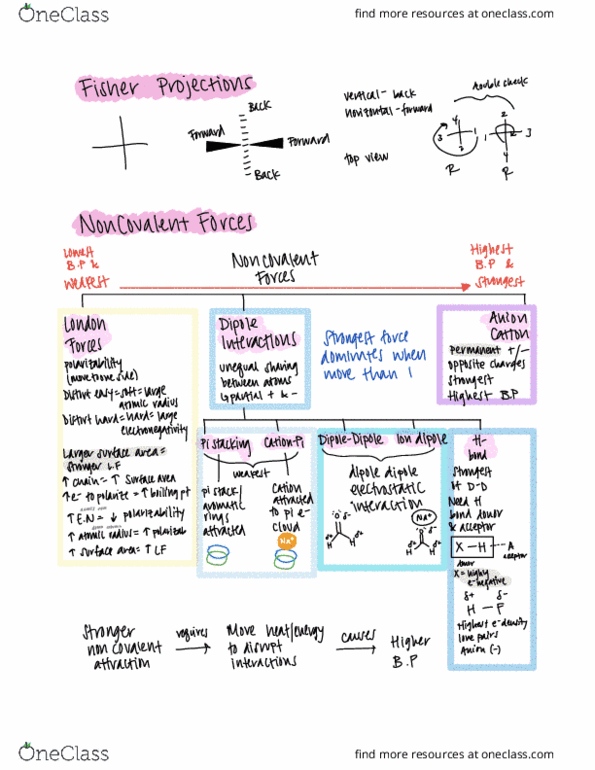 OneClass
find more resources at oneclass.com
Fisher Projections
Back
Forward
Forward
Back
vertical- back
horizontal-forward
top view
double check
4
3
1
2
R
2
1
3
4
R
NonCovalent Forces
Lowest
B.P &
weakest
NonCovalent
Forces
Highest
B.P &
strongest
London
Forces
polarizability
(move to one side)
Distort easy=soft=large
atomic radius
Distort hard=hard=large
electronegativity
Larger surface area=
stronger LF
↑ chain=↑ surface area
↑e- to polarize=↑boiling pt
↑E.N=↓ polarizability
↑ atomic radius=↑ polarizab
↑ surface area=↑ LF
Dipole
Interactions
unequal sharing
between atoms
↳partial + & -
Strongest force
dominates when
more than 1
Anion
Cation
permanent +/-
opposite charges
strongest
Highest B.P
Pi stacking
Cation-Pi
weakest
pi stack/
aromatic
rings
attracted
Cation
attracted
to pi e-
cloud
Na+
Dipole-Dipole
Ion dipole
dipole dipole
electrostatic
interaction
:O: δ-
δ+ H
H δ+
Na+
:O: δ-
δ+ H
H δ+
H-
bond
strongest
of D-D
Need H
bond donor
& acceptor
X-H
A
donor
acceptor
X= highly
e-negative
δ+ δ-
H-F
Highest e-density
lone pairs
Anion (-)
stronger
non covalent
attraction
requires
More heat/energy
to disrupt
interactions
causes
Higher
B.P
OneClass
find more resources at oneclass.com